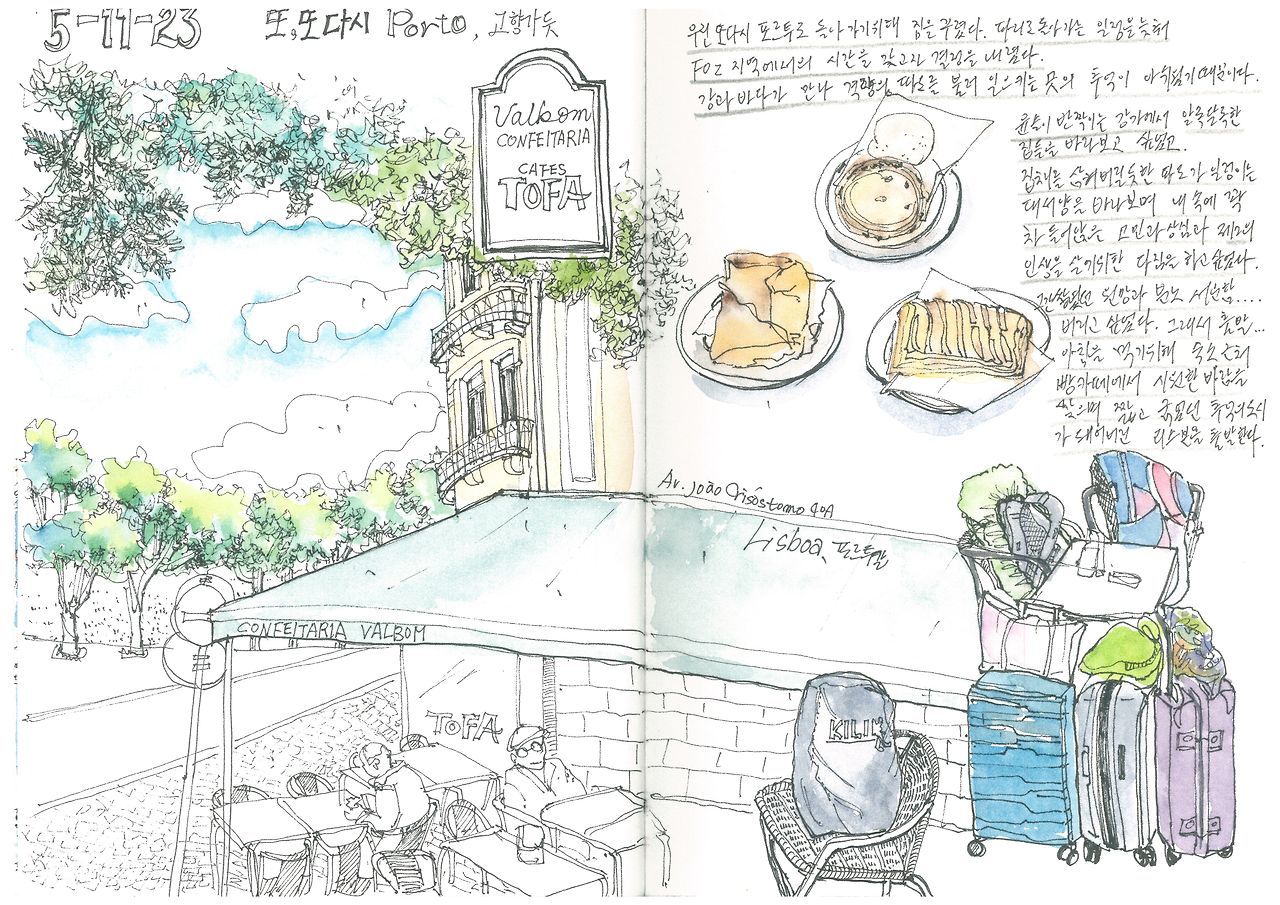 5-11-23 또, 또 다시 Porto, 고향가듯
Valbom
CONFEITARIA
CAFES
TOFA
우린 또다시 포르투로 돌아가기위해 짐을 꾸렸다. 파리로 돌아가는 일정을 늦춰
FOZ 지역에서의 시간을 갖고자 결정을 내렸다.
강과 바다가 만나 격랑의 파도를 불러 일으키는 곳의 추억이 아쉬웠기 때문이다.
윤슬이 반짝이는 강가에서 알록달록한
집들을 바라보고 싶었고.
집채를 삼켜버릴듯한 파도가 일렁이는
대서양을 바라보며 내 속에 꽉
차 들어앉은 고민과 상심과 제2의
인생을 살기위한 다짐을 하고 싶었다.
원망과 분노 서운함....
버리고 싶었다. 그래서 출발...
아침을 먹기위해 숙소 근처
빵카페에서 시원한 바람을
맞으며 짧고 굵었던 추억의 도시
리스본을 출발한다.
Av. João Crisóstomo 40A
Lisboa, 포르투갈
CONFEITARIA VALBOM
TOFA
KILI